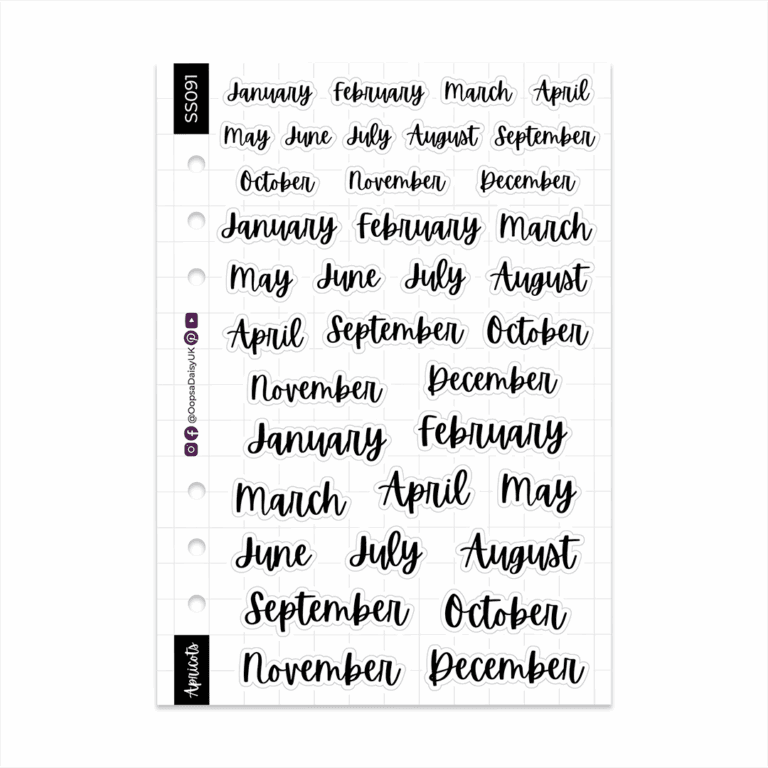 SS091
January February March April
May June July August September
October November December
January February March
May June July August
April September October
November December
January February
March April May
June July August
September October
November December
@OopsaDaisyUK
Apricots